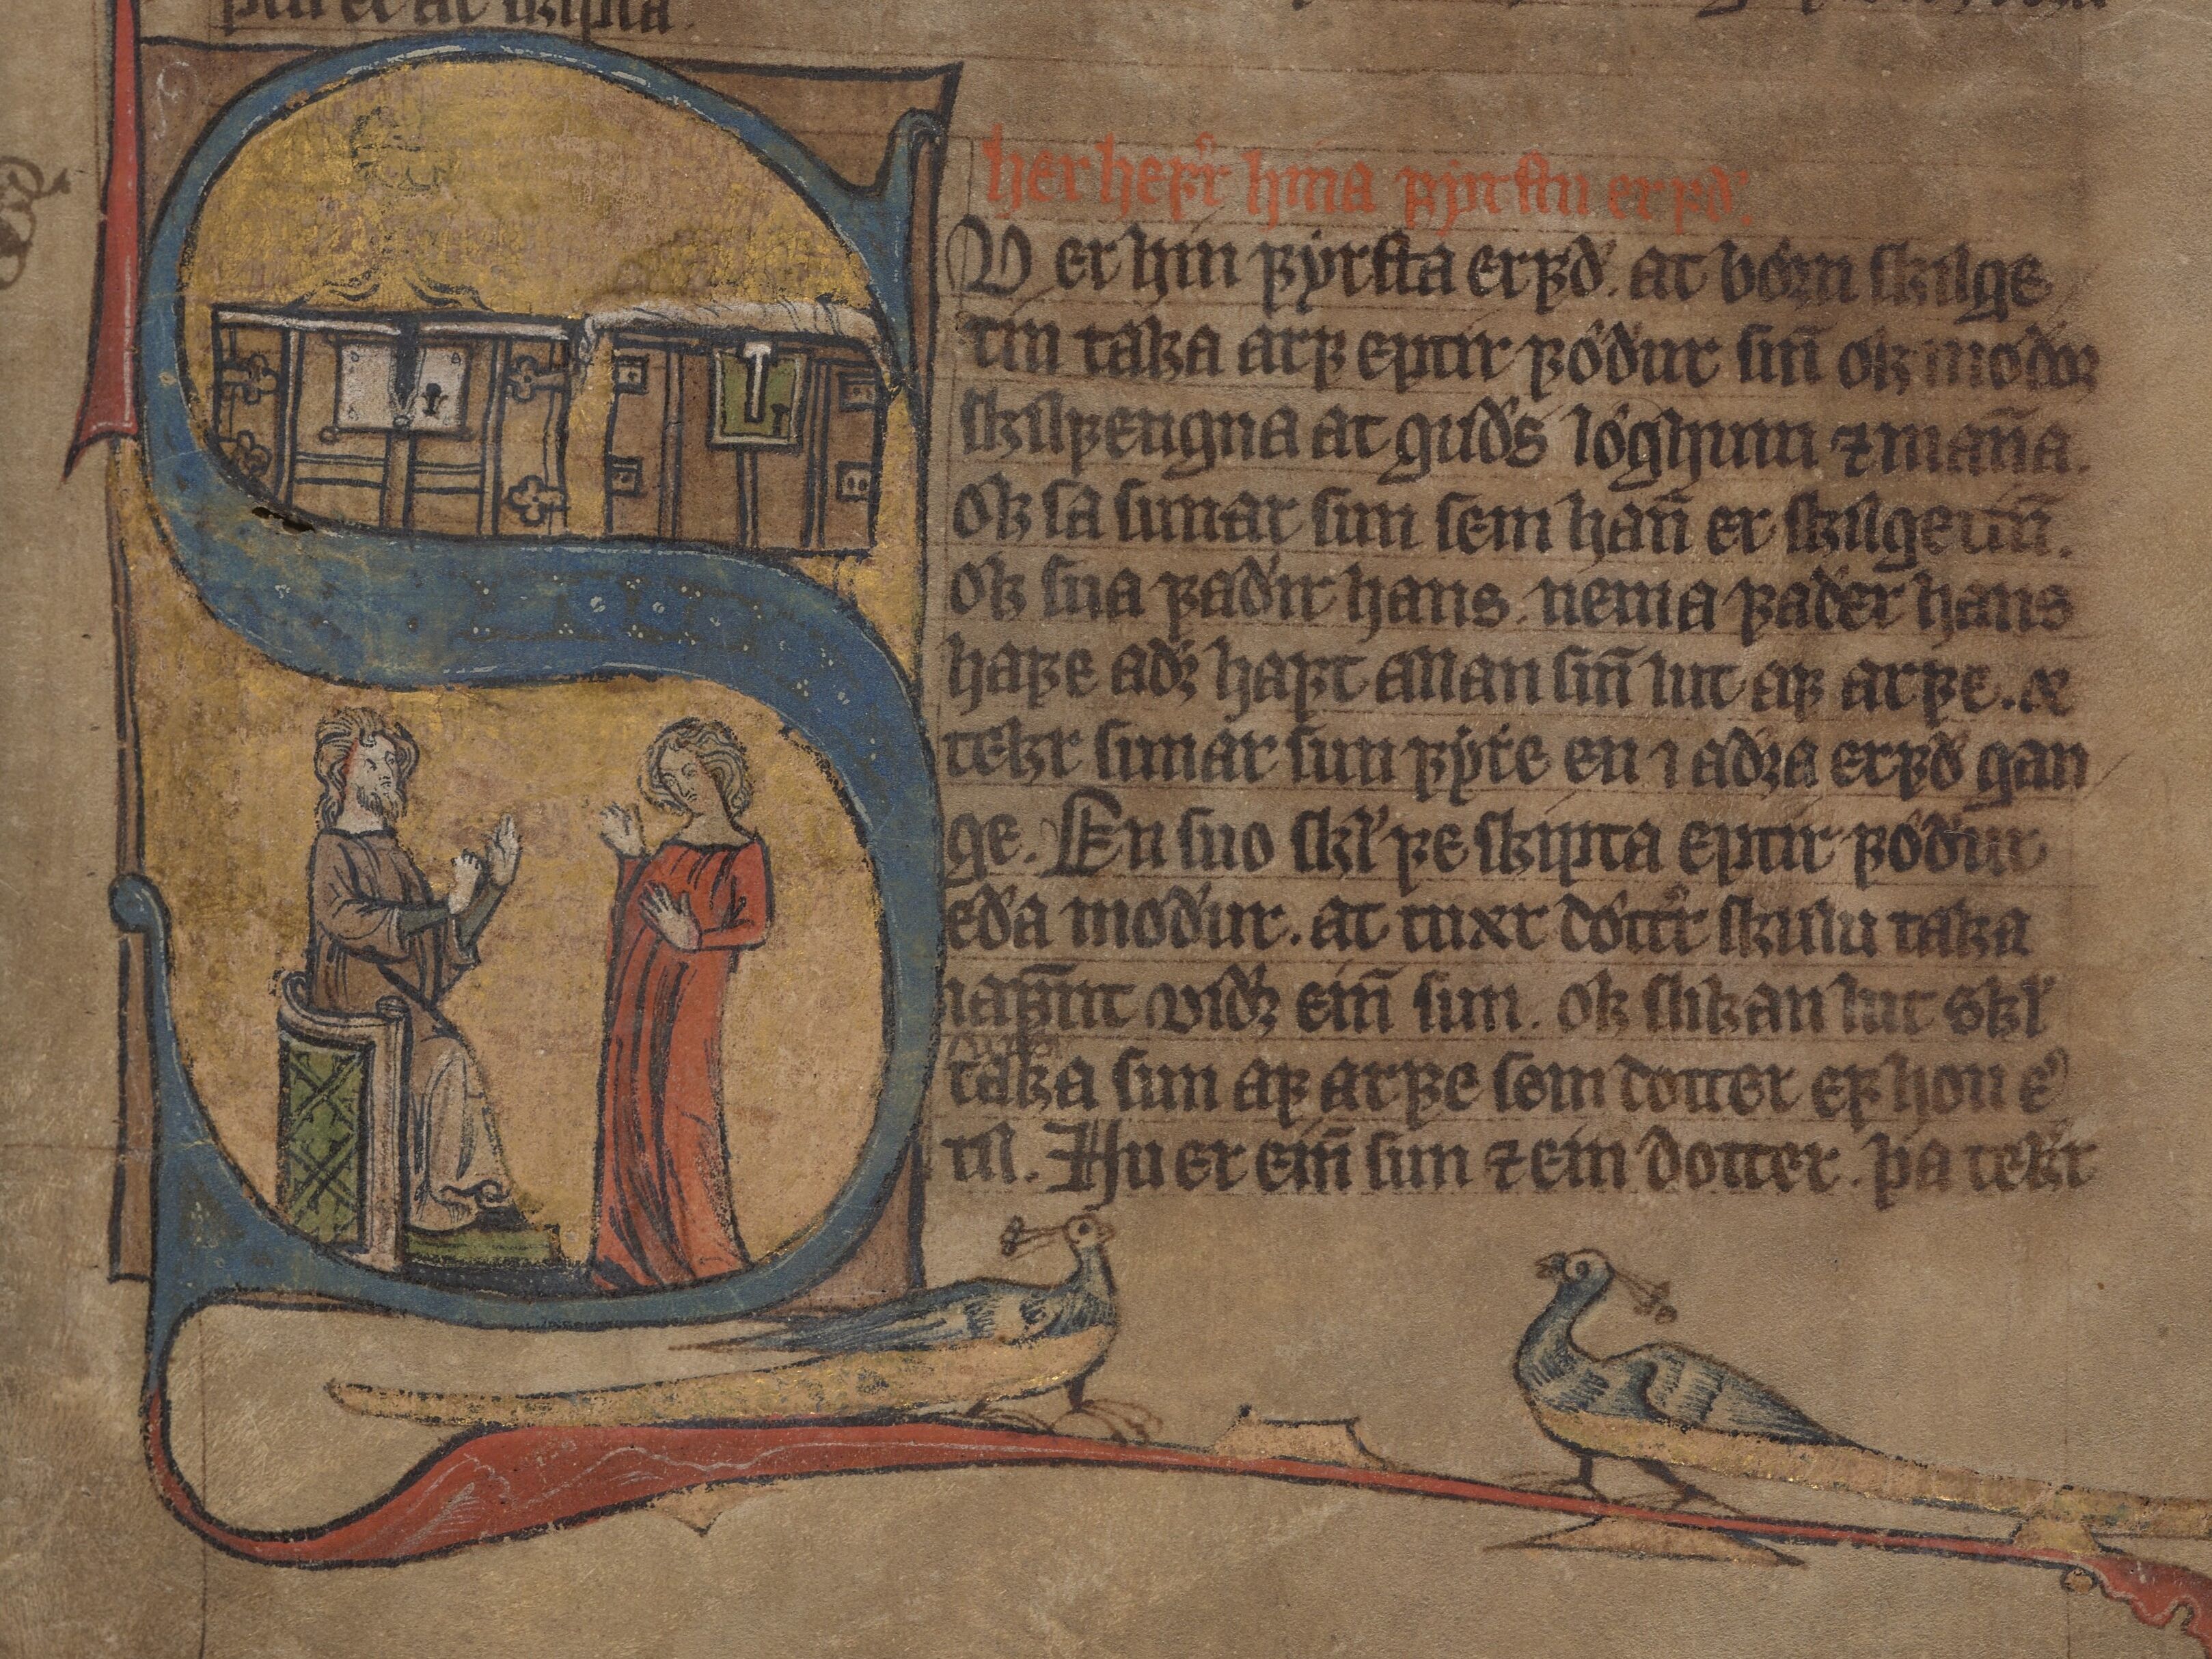 skipta.
her hefr hina fyrstu erfð.
V er hin fyrsta erfð. at börn skilge
tin taka arf eptir föður sin̄ ok modor
skilfengna at guðs löghum ⁊ man̄a.
Ok sa sunar sun sem han̄ er skilgetin̄.
Ok sua faðir hans. nema faðer hans
hafe aðꝛ haft allan sin̄ lut af arfe. &
tekr sunar sun fyrre en i aðꝛa erfð gan
ge. En suo skl̉ fe skipta eptir föður
eða moður. at tuær döttr̉ skulu taka
iafm̄t viðꝛ ein̄ sun. ok slikan lut skl̉
taka sun af arfe sem dotter ef hon e̓
til. Hu er ein̄ sun ⁊ ein dotter. þa tekr